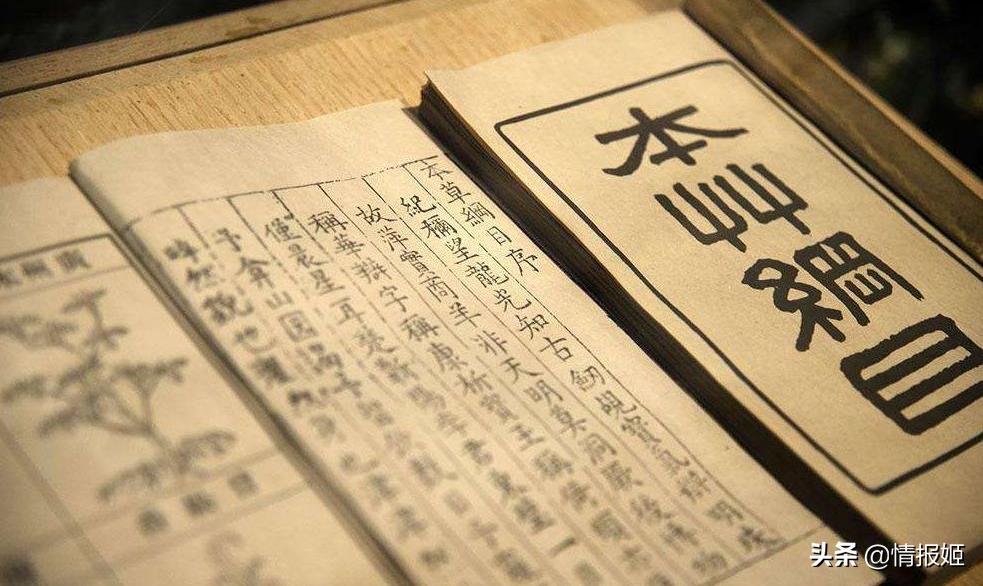 本草綱目
本草綱目序
紀稱望龍光知古劒覘寶氣辨明珠
故萍實商羊非天明莫洞厥後博物
稱華辯字稱康析寶玉稱倚頓
僅晨星耳楚蘄陽李君東璧一
予弇山園謁予留飲數日予
晬然貌也癯然身也津津
头条 @情报姬